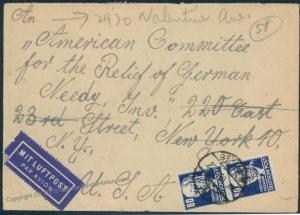 An → 2930 Valentine Ave. 58
„American Committee
for the Relief of German
Needy, Inv." 220 East
23rd Street, New York 10.
N.Y.
U.S.A
MIT LUFTPOST
PAR AVION
80